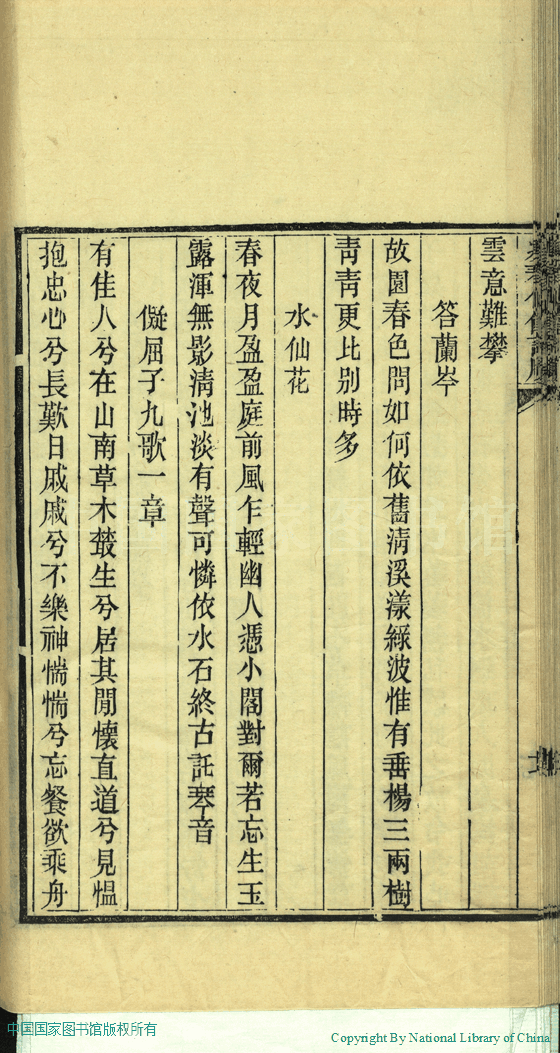 雲意難攀
答蘭岑
故園春色問如何依舊清溪漾綠波惟有垂楊三兩樹
青青更比別時多
水仙花
春夜月盈盈庭前風乍輕幽人憑小閣對爾若忘生玉
露渾無影清池淡有聲可憐依水石終古託琴音
儗屈子九歌一章
有佳人兮在山南草木叢生兮居其閒懷直道兮見慍
抱忠心兮長歎日戚戚兮不樂神惴惴兮忘餐欲乘舟
中国国家图书馆版权所有
Copyright By National Library of China